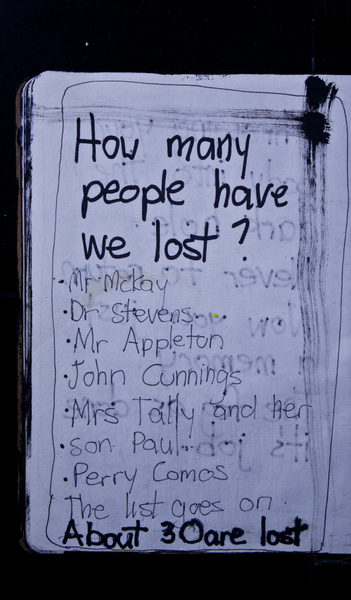 How many
people have
we lost?
• Mr Mckay
• Dr Stevens
• Mr Appleton
• John Cunnings
• Mrs Tally and her
• son Paul
• Perry Comos
The list goes on
About 30 are lost